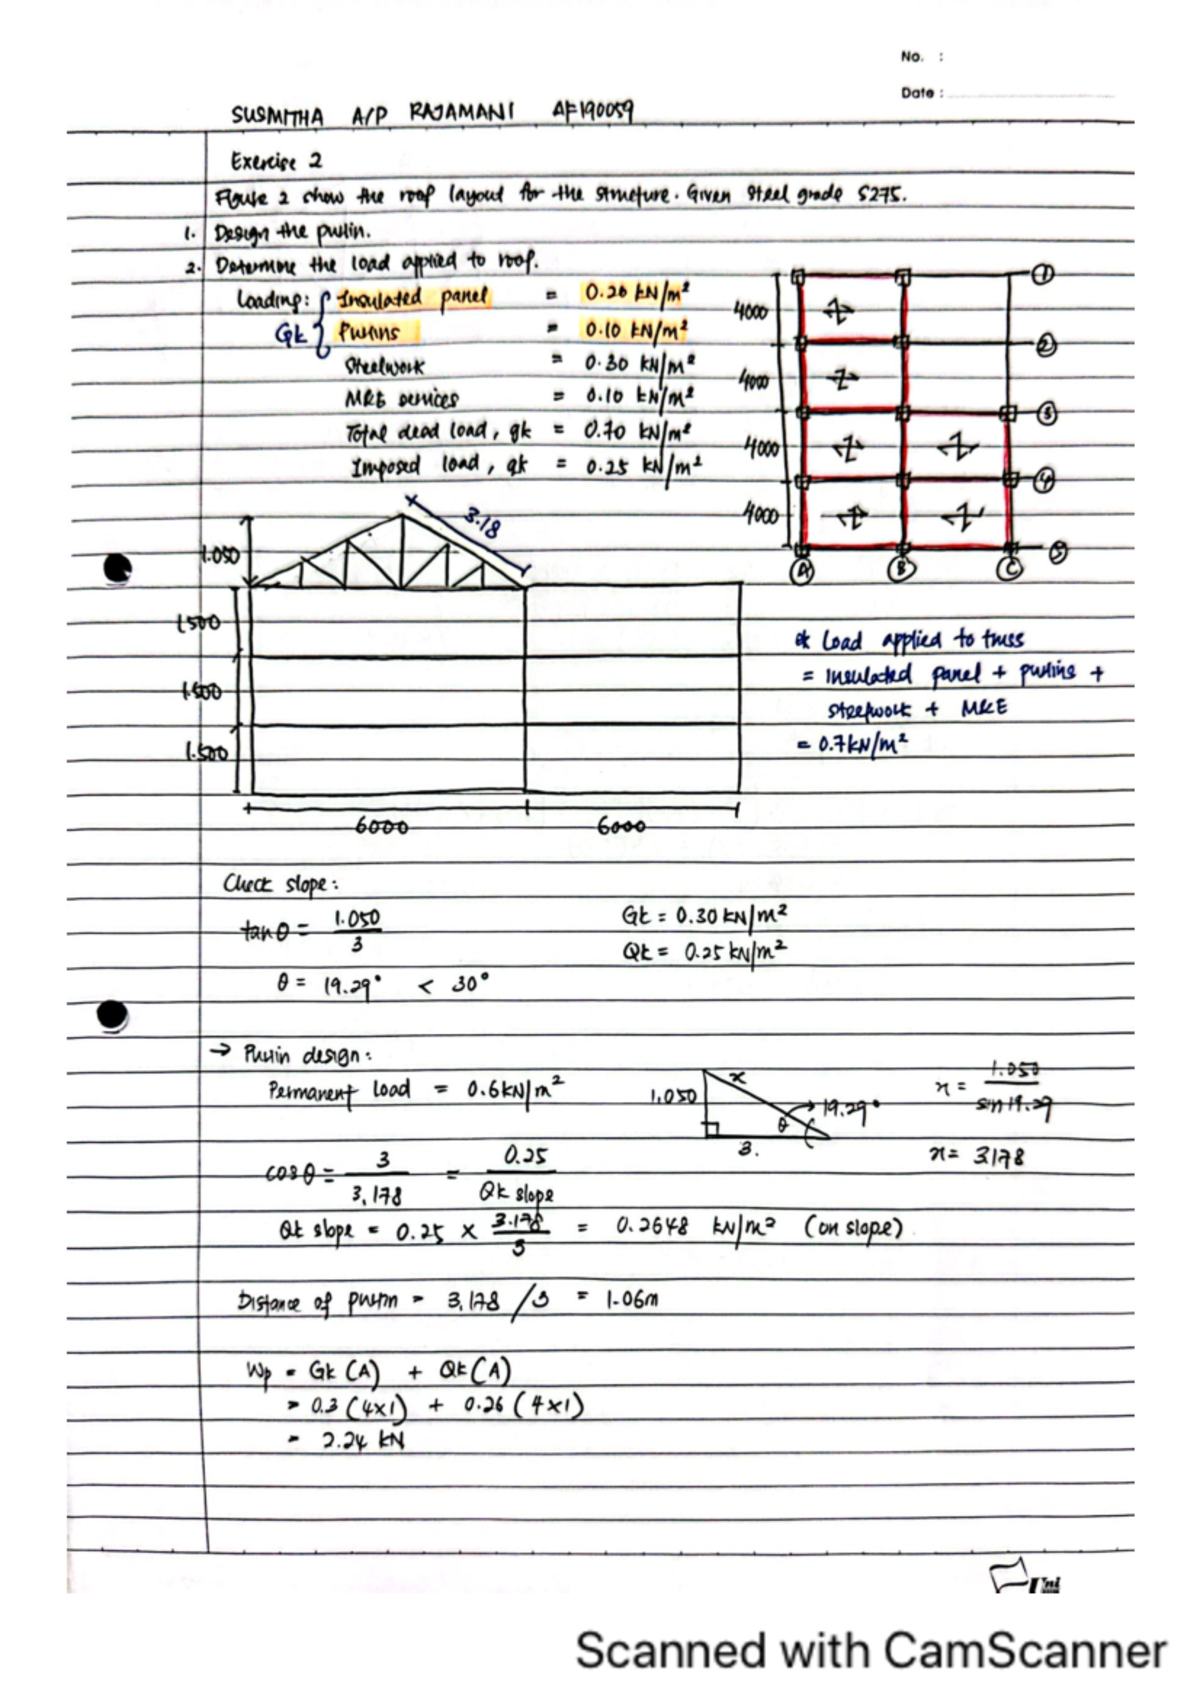 No. :
Date :
SUSMITHA A/P RAJAMANI AF190059
Exercise 2
Figure 2 show the roof layout for the structure. Given steel grade S275.
1. Design the purlin.
2. Determine the load applied to roof.
Loading: { Insulated panel = 0.20 kN/m²
Gk { Purlins = 0.10 kN/m²
Steelwork = 0.30 kN/m²
M&E services = 0.10 kN/m²
Total dead load, gk = 0.70 kN/m²
Imposed load, qk = 0.25 kN/m²
4000
4000
4000
4000
1
2
3
4
5
A B C
3.18
1.050
1.500
1.500
1.500
6000 6000
* Load applied to truss
= Insulated panel + purlins +
steelwork + M&E
= 0.7kN/m²
Check slope:
tan θ = 1.050 / 3
θ = 19.29° < 30°
Gk = 0.30 kN/m²
Qk = 0.25 kN/m²
→ Purlin design:
Permanent load = 0.6kN/m²
1.050 x θ 19.29° 3.
x = 1.050 / sin 19.29
x = 3178
cos θ = 3 / 3.178 = 0.25 / Qk slope
Qk slope = 0.25 × 3.178 / 3 = 0.2648 kN/m² (on slope)
Distance of purlin = 3.178 / 3 = 1.06m
Wp = Gk (A) + Qk (A)
= 0.3 (4×1) + 0.26 (4×1)
= 2.24 kN
Scanned with CamScanner